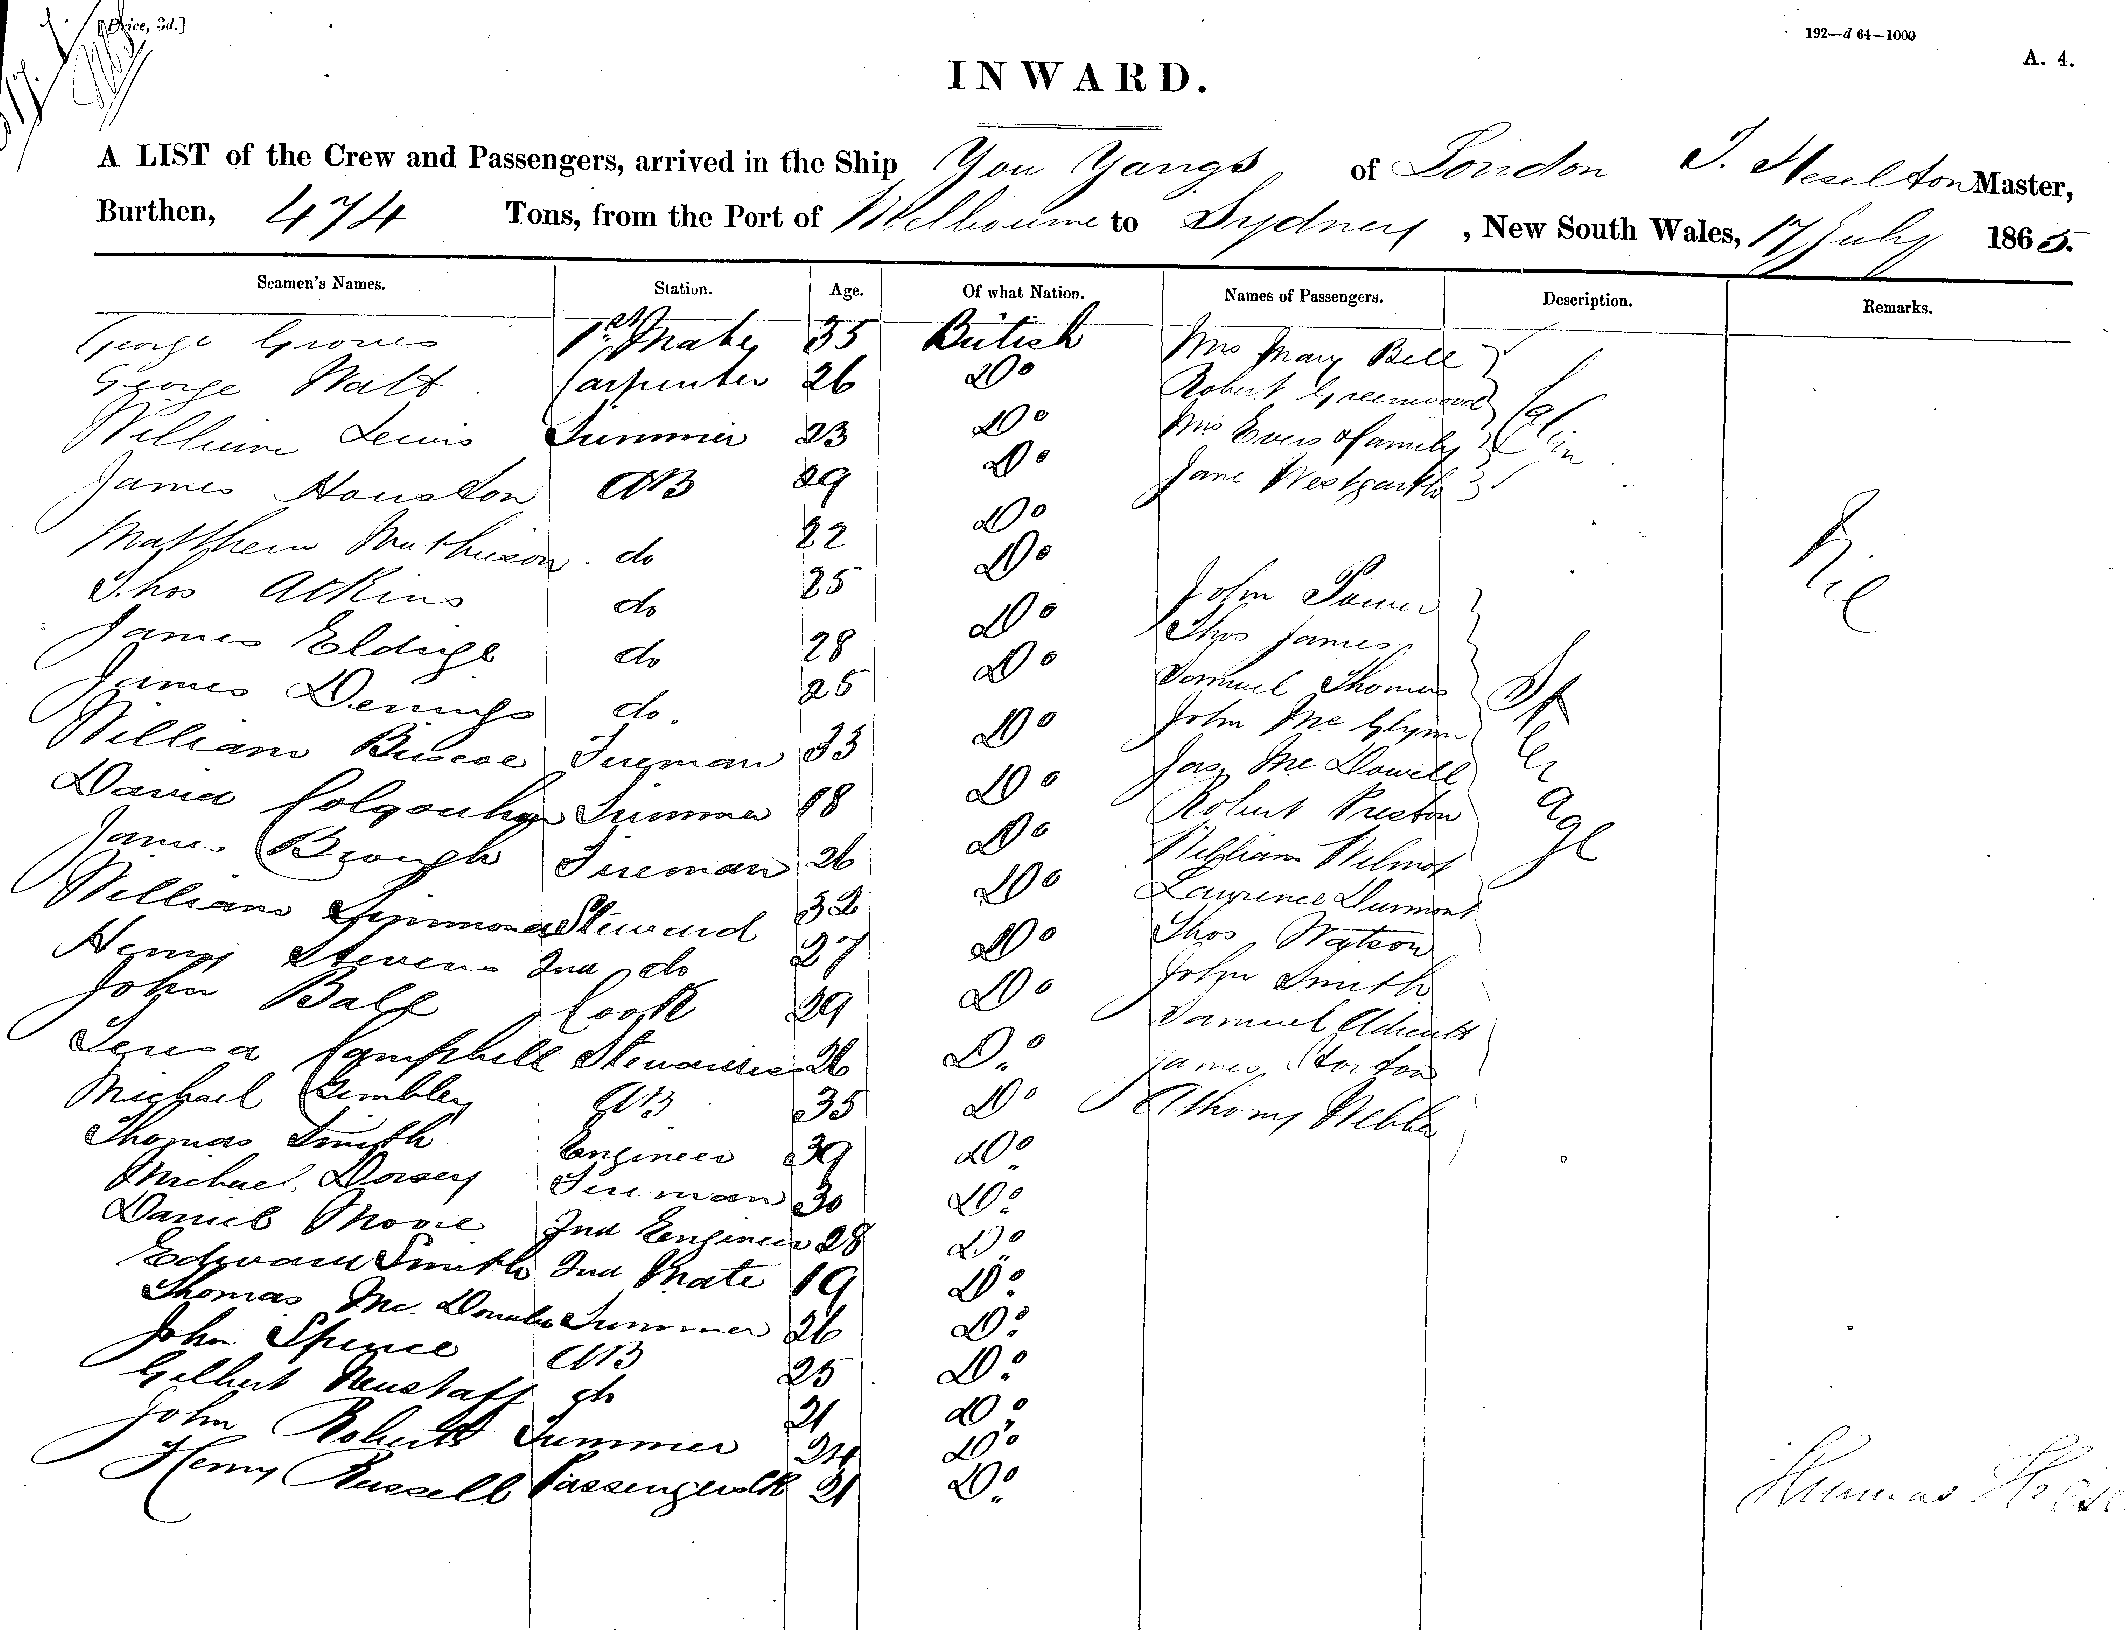 [Price, 3d.]
192—d 64—1000
A. 4.
INWARD.
A LIST of the Crew and Passengers, arrived in the Ship You Yangs, of London T. Heselton Master,
Burthen, 474 Tons, from the Port of Melbourne to Sydney, New South Wales, 17 July 1865.
Seamen's Names. Station. Age. Of what Nation. Names of Passengers. Description. Remarks.
George Groves 1st Mate 35 British Mrs Mary Bell
George Watt Carpenter 26 Do Robert Greenwood Cabin
William Lewis Trimmer 23 Do Mrs Evers & family
James Houston AB 29 Do Jane Westgarth
Matthew Mathieson do 22 Do Nil
Thos Atkins do 25 Do John
James Eldridge do 28 Do Thos James
James Dennys do. 25 Do Samuel Thomas Steerage
William Biscoe Fireman 33 Do John Mc Glynn
David Colqouhon Trimmer 18 Do Jas Mc Dowell
James Brough Fireman 26 Do Robert Preston
William Simmonds Steward 32 Do William Wilmot
Henry Stevens 2nd do 27 Do Lawrence Durmont
John Ball Cook 29 Do Thos Watson
Teresa Campbell Stewardess 26 Do John Smith
Michael Gembley AB 35 Do Samuel
Thomas Smith Engineer 39 Do James
Michael Dorsey Fireman 30 Do Webber
Daniel Moore 2nd Engineer 28 Do
Edward Smith 2nd Mate 19 Do
Thomas Mc. Trimmer 26 Do
John Spence AB 25 Do
Gilbert do 21 Do
John Roberts Trimmer 24 Do
Henry Russell 21 Do
Thomas